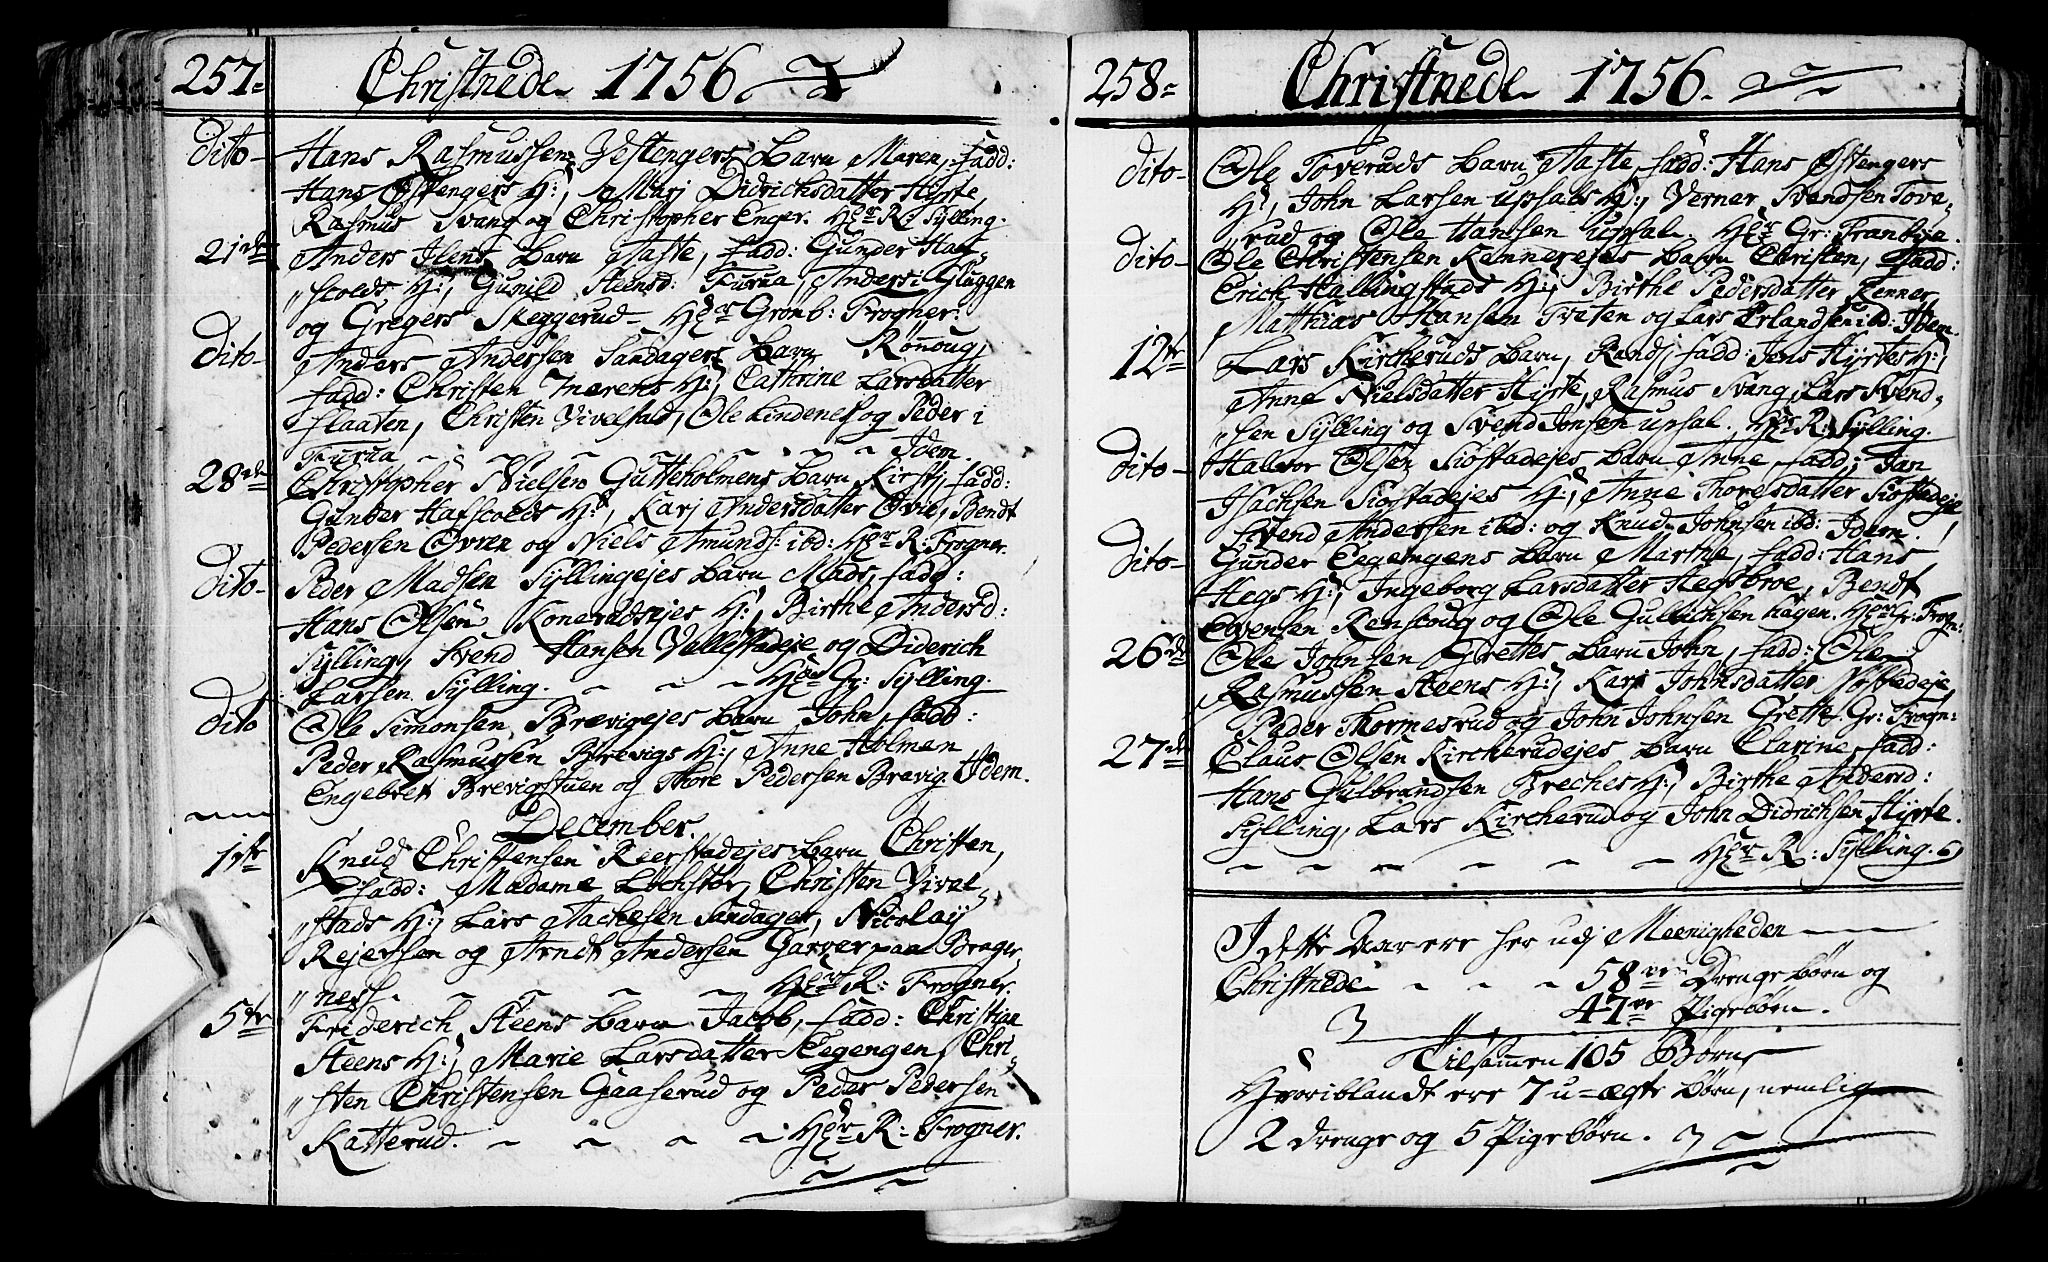 257=
Christnede 1756
dito-
Hans Rasmussen Vestengers barn Maren, fadd:
Hans Østengers H:, Marj Didrichsdatter Hyrte,
Rasmus Svang og Christopher Enger. Hr R: Sylling.
21de
Anders Ilens barn Aaste, fadd: Gunder Haf-
"scolds H:, Gunild Steensd: Furua, Anders i Gluggen
og Gregers Skeggerud- Hr Grønb: Frogner.
Dito-
Anders Andersen Sandagers barn Rønnoug,
fadd: Christen Inærens H:, Cathrine Larsdatter
Slaaten, Christen Vivelstad, Ole Lindenes og Peder i
Furua Idem.
28de
Christopher Nielsen Gutteholmens barn Kirstj, fadd:
Gunder Hafscolds H:, Karj Andersdatter Øvre, Bendt
Pedersen Øvren og Niels Amunds: ibd: Hr R: Frogner.
Dito-
Peder Madsen Syllingejes barn Mads, fadd:
Hans Olsen Koneradsejes H:, Birthe Andersd:
Sylling, Svend Hansen Vallestadeje og Diderich
Larsen Sylling. Hr Gr: Sylling.
dito
Ole Simonsen Brævigejes barn John, fadd:
Peder Rasmussen Brevigs H:, Anne Holmen
Engebret Brevigstuen og Thore Pedersen Brevig. Idem.
December.
1ste
Knud Christensen Reerstadejes barn Christen,
fadd: Madame Lochstør, Christen Vivel-
"stads H:, Lars Aachesen Sandager, Nicolay
Rejersen og Arndt Andersen Garver paa Brager,
"ness. Hr R: Frogner.
5te
Friderich Steens barn Jacob, fadd: Christian
Steens H:, Marie Larsdatter Egengen, Chri-
"sten Christensen Gaaserud og Peder Pedersen
Katterud. Hr R: Frogner.
258=
Christnede 1756.
dito-
Ole Toveruds barn Aaste, fadd: Hans Østengers
H:, John Larsen Upsals H:, Verner Svendsen Tove-
"rud og Ole Hansen Upsal. Hr Gr:
dito-
Ole Christensen Rennerejes barn Christen, fadd:
Erich Hallingstads H:, Birthe Pedersdatter Renner,
Matthias Hansen Tveten og Lars Erlandsen ibd: Idem.
12te
Lars Kircheruds barn, Randj, fadd: Jens Hyrtes H:,
Anne Nielsdatter Hyrte, Rasmus Svang, Lars Svend-
"sen Sylling og Svend Jonsen Upsal. Hr R: Sylling.
dito-
Halvor Olsen Siøstadejes barn Anne, fadd: Jan
Isachsen Siøstadejes H:, Anne Thoresdatter Siøstadeje,
Svend Andersen ibd: og Knud Johnsen ibd: Idem.
dito-
Gunder Egengens barn Marthe, fadd: Hans
Hegs H:, Ingeborg Larsdatter Hegsbroe, Bendt
Evensen Renscoug og Ole Gulbichsen Hagen. Hr Gr: Frogn:
26de
Ole Johnsen Grettes barn John, fadd: Ole
Rasmussen Steens H:, Karj Johnsdatter
Peder Thormesrud og John Johnsen Grette. Gr: Frogn:
27de
Claus Olsen Kircherudejes barn Clarine, fadd:
Hans Gulbrandsen Breches H:, Birthe Andersd:
Sylling, Lars Kircherud og John Didrichsen Hyrte.
Hr R: Sylling.
I dette Aar ere her udj Meenigheden
Christnede 58ve Drengebørn og
47ve Pigebørn.
Tilsammen 105 Børn
Hvoriblandt ere 7 u=ægte børn, nemlig
2 drenge og 5 Pigebørn.